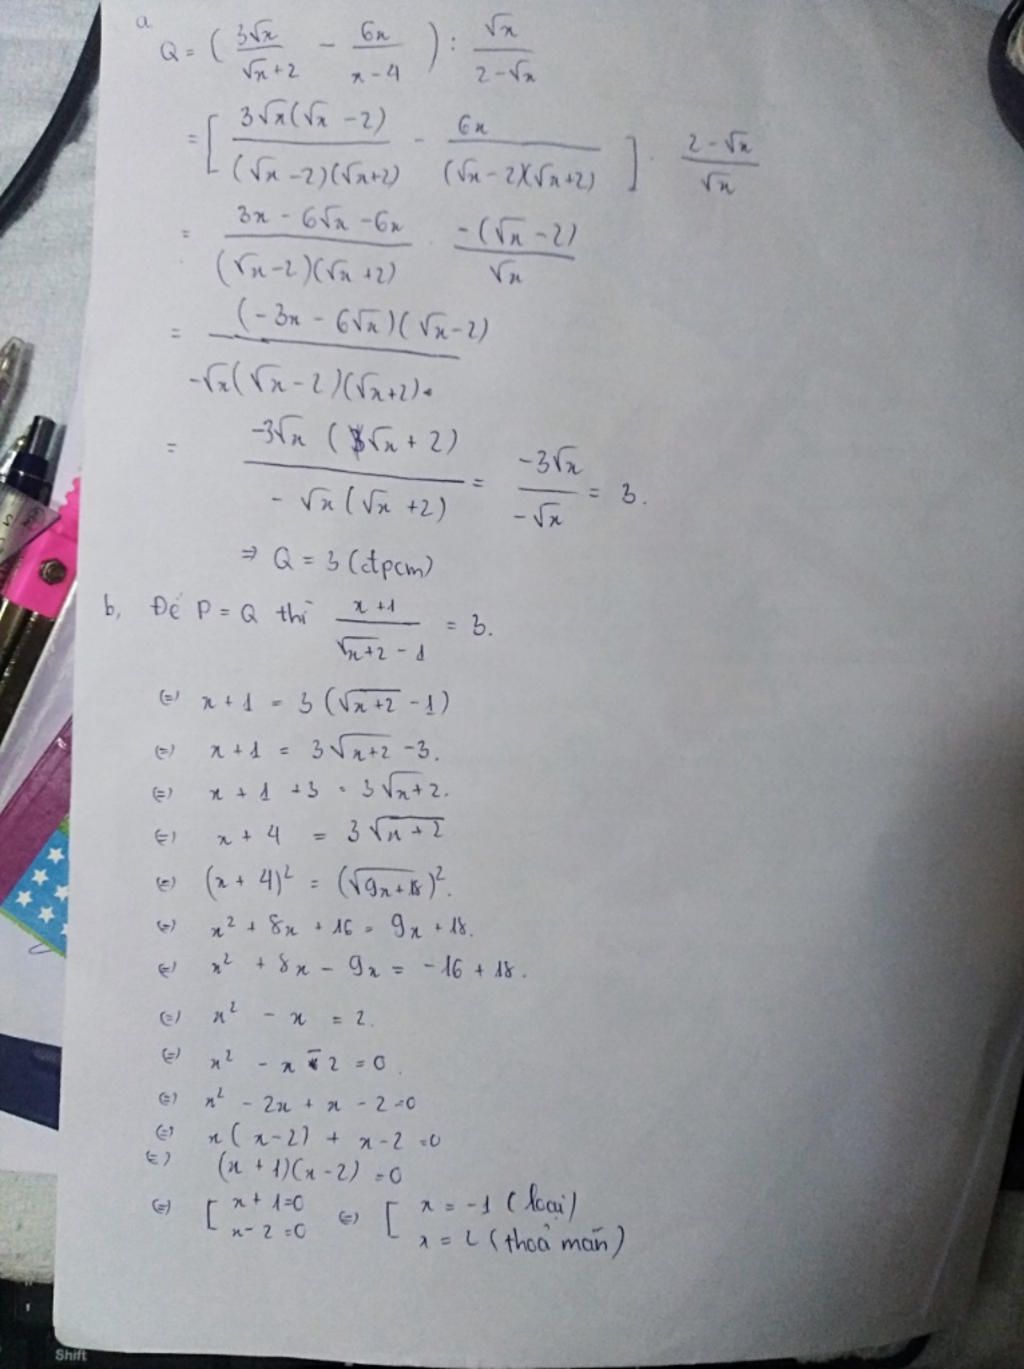 a
Q = ( 3√x / √x+2 − 6x / x−4 ) : √x / 2−√x
= [ 3√x(√x −2) / (√x −2)(√x+2) − 6x / (√x −2)(√x+2) ] . 2−√x / √x
= 3x − 6√x − 6x / (√x−2)(√x +2) . −(√x −2) / √x
= (−3x − 6√x)(√x−2) / −√x(√x −2)(√x+2).
= −3√x (√x + 2) / −√x (√x +2) = −3√x / −√x = 3.
⇒ Q = 3 (đpcm)
b, Để P = Q thì x+1 / √x+2 −1 = 3.
(=) x + 1 = 3 (√x+2 −1)
(=) x + 1 = 3√x+2 −3.
(=) x + 1 +3 = 3√x+2.
(=) x + 4 = 3√x+2
(=) (x + 4)² = (√9x+18)².
(=) x² + 8x + 16 = 9x + 18.
(=) x² + 8x − 9x = −16 + 18.
(=) x² − x = 2.
(=) x² − x − 2 = 0.
(=) x² − 2x + x − 2 = 0
(=) x( x−2) + x−2 = 0
(=) (x + 1)(x −2) = 0
(=) [ x + 1=0 (=) [ x = −1 (loại)
x − 2 = 0 x = 2 (thoả mãn)
Shift